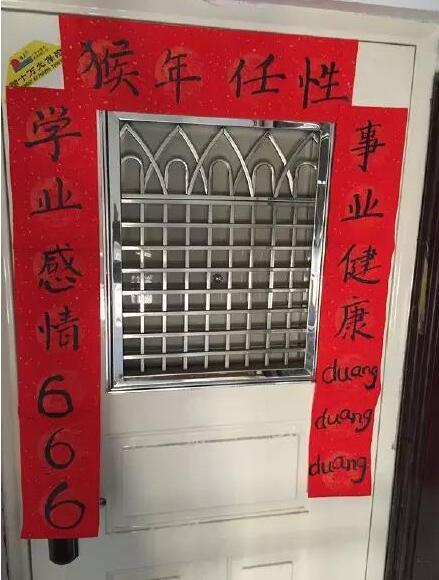 猴年任性
学业感情666
事业健康duang duang duang